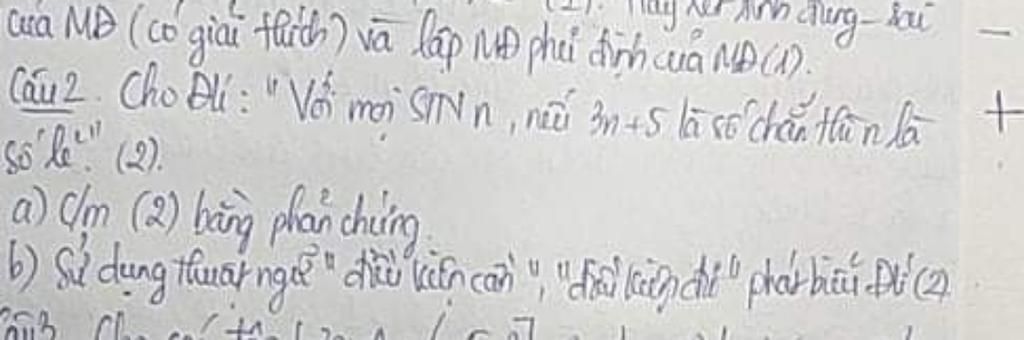 (1). Hãy xét tính đúng-sai
của MĐ (có giải thích) và lập MĐ phủ định của MĐ(1).
Câu 2. Cho ĐLí: "Với mọi STN n, nếu 3n+5 là số chẵn thì n là
số lẻ." (2).
a) C/m (2) bằng phản chứng.
b) Sử dụng thuật ngữ "điều kiện cần", "điều kiện đủ" phát biểu ĐLí (2)
Câu 3. Cho